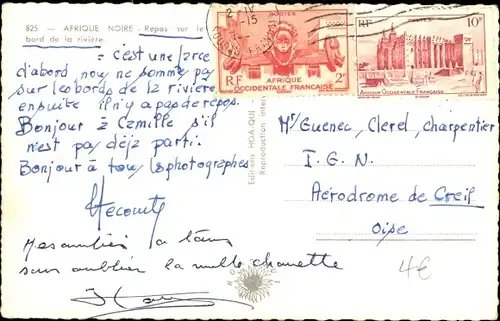 825 - AFRIQUE NOIRE - Repas sur le
bord de la rivière
= c'est une farce
d'abord, nou ne somme pas
sur le bord de la rivière
ensuite il n'y a pas de repos.
Bonjour à Camille s'il
n'est pas déjà parti.
Bonjour à tous les photographes
Lecomte
a tous
sans oublier la
Editions HOA-QUI
Reproduction inter
POSTES
RF
AFRIQUE
OCCIDENTALE FRANÇAISE
2F
RF
10F
AFRIQUE OCCIDENTALE FRANÇAISE
Mr Guenec, Clerel, charpentier
I. G. N.
Aérodrome de Creil
Oise
4€